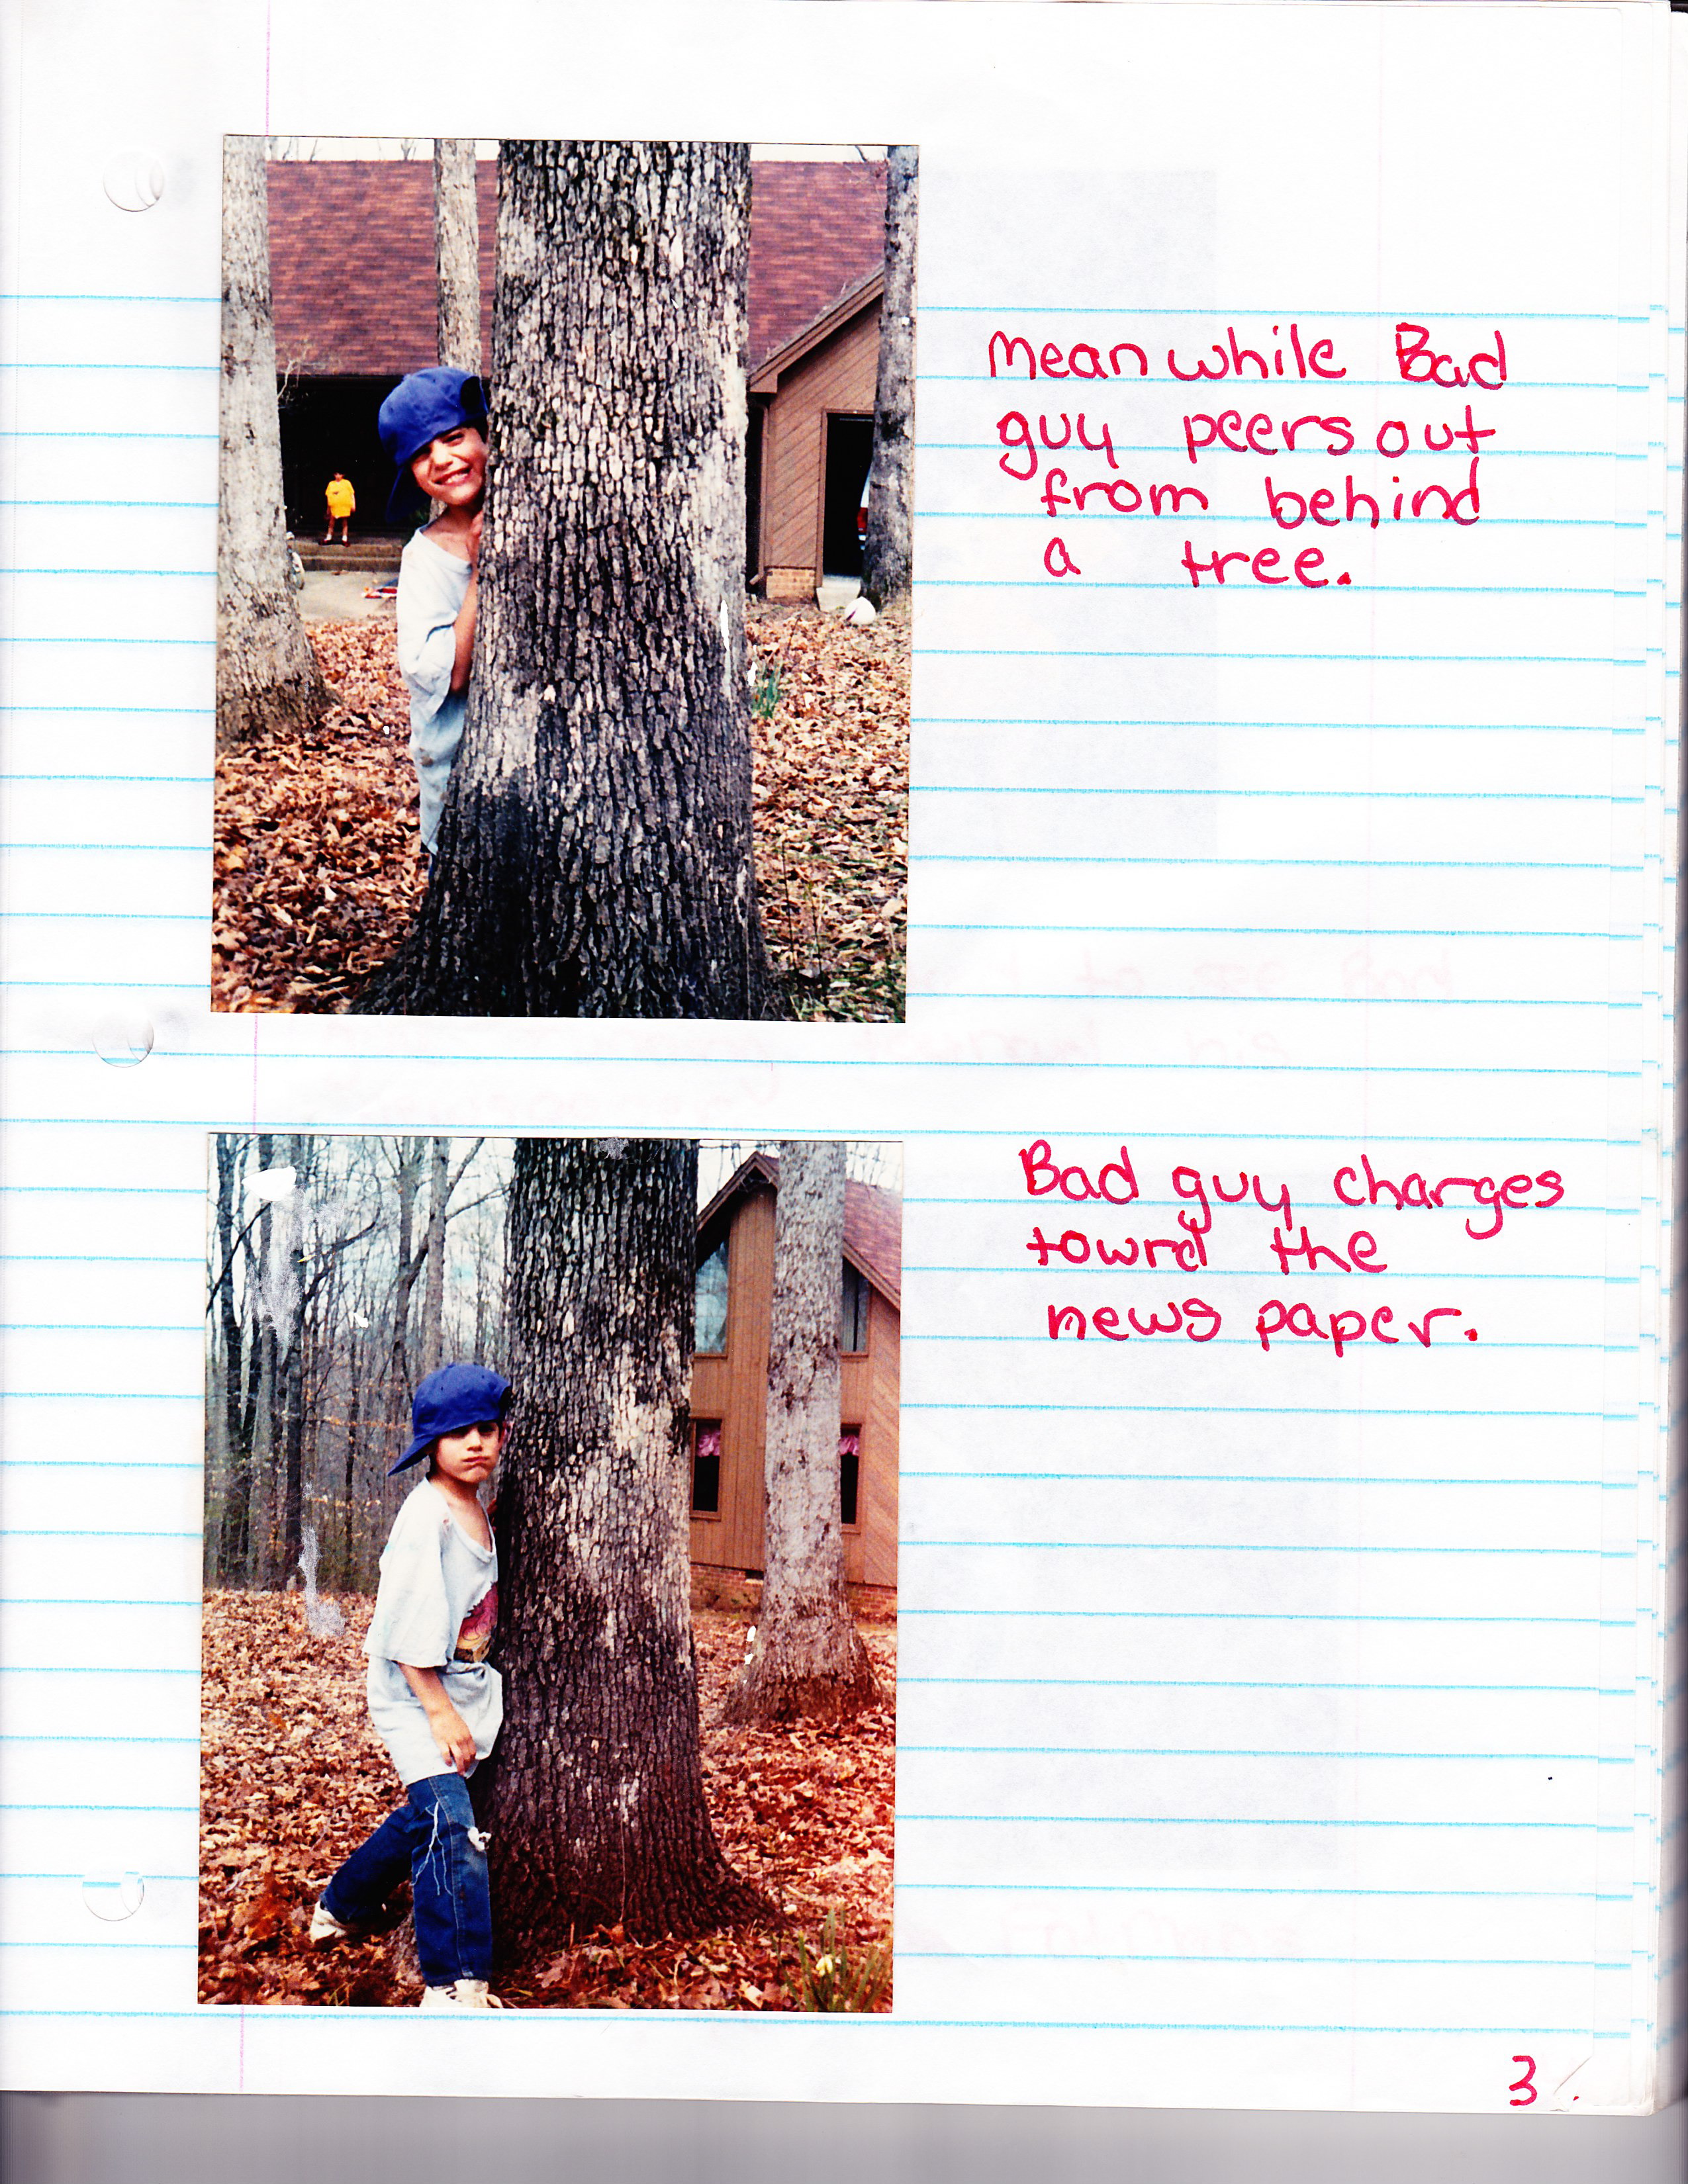 Meanwhile Bad
guy peers out
from behind
a tree.
Bad guy charges
towrd the
news paper.
3.